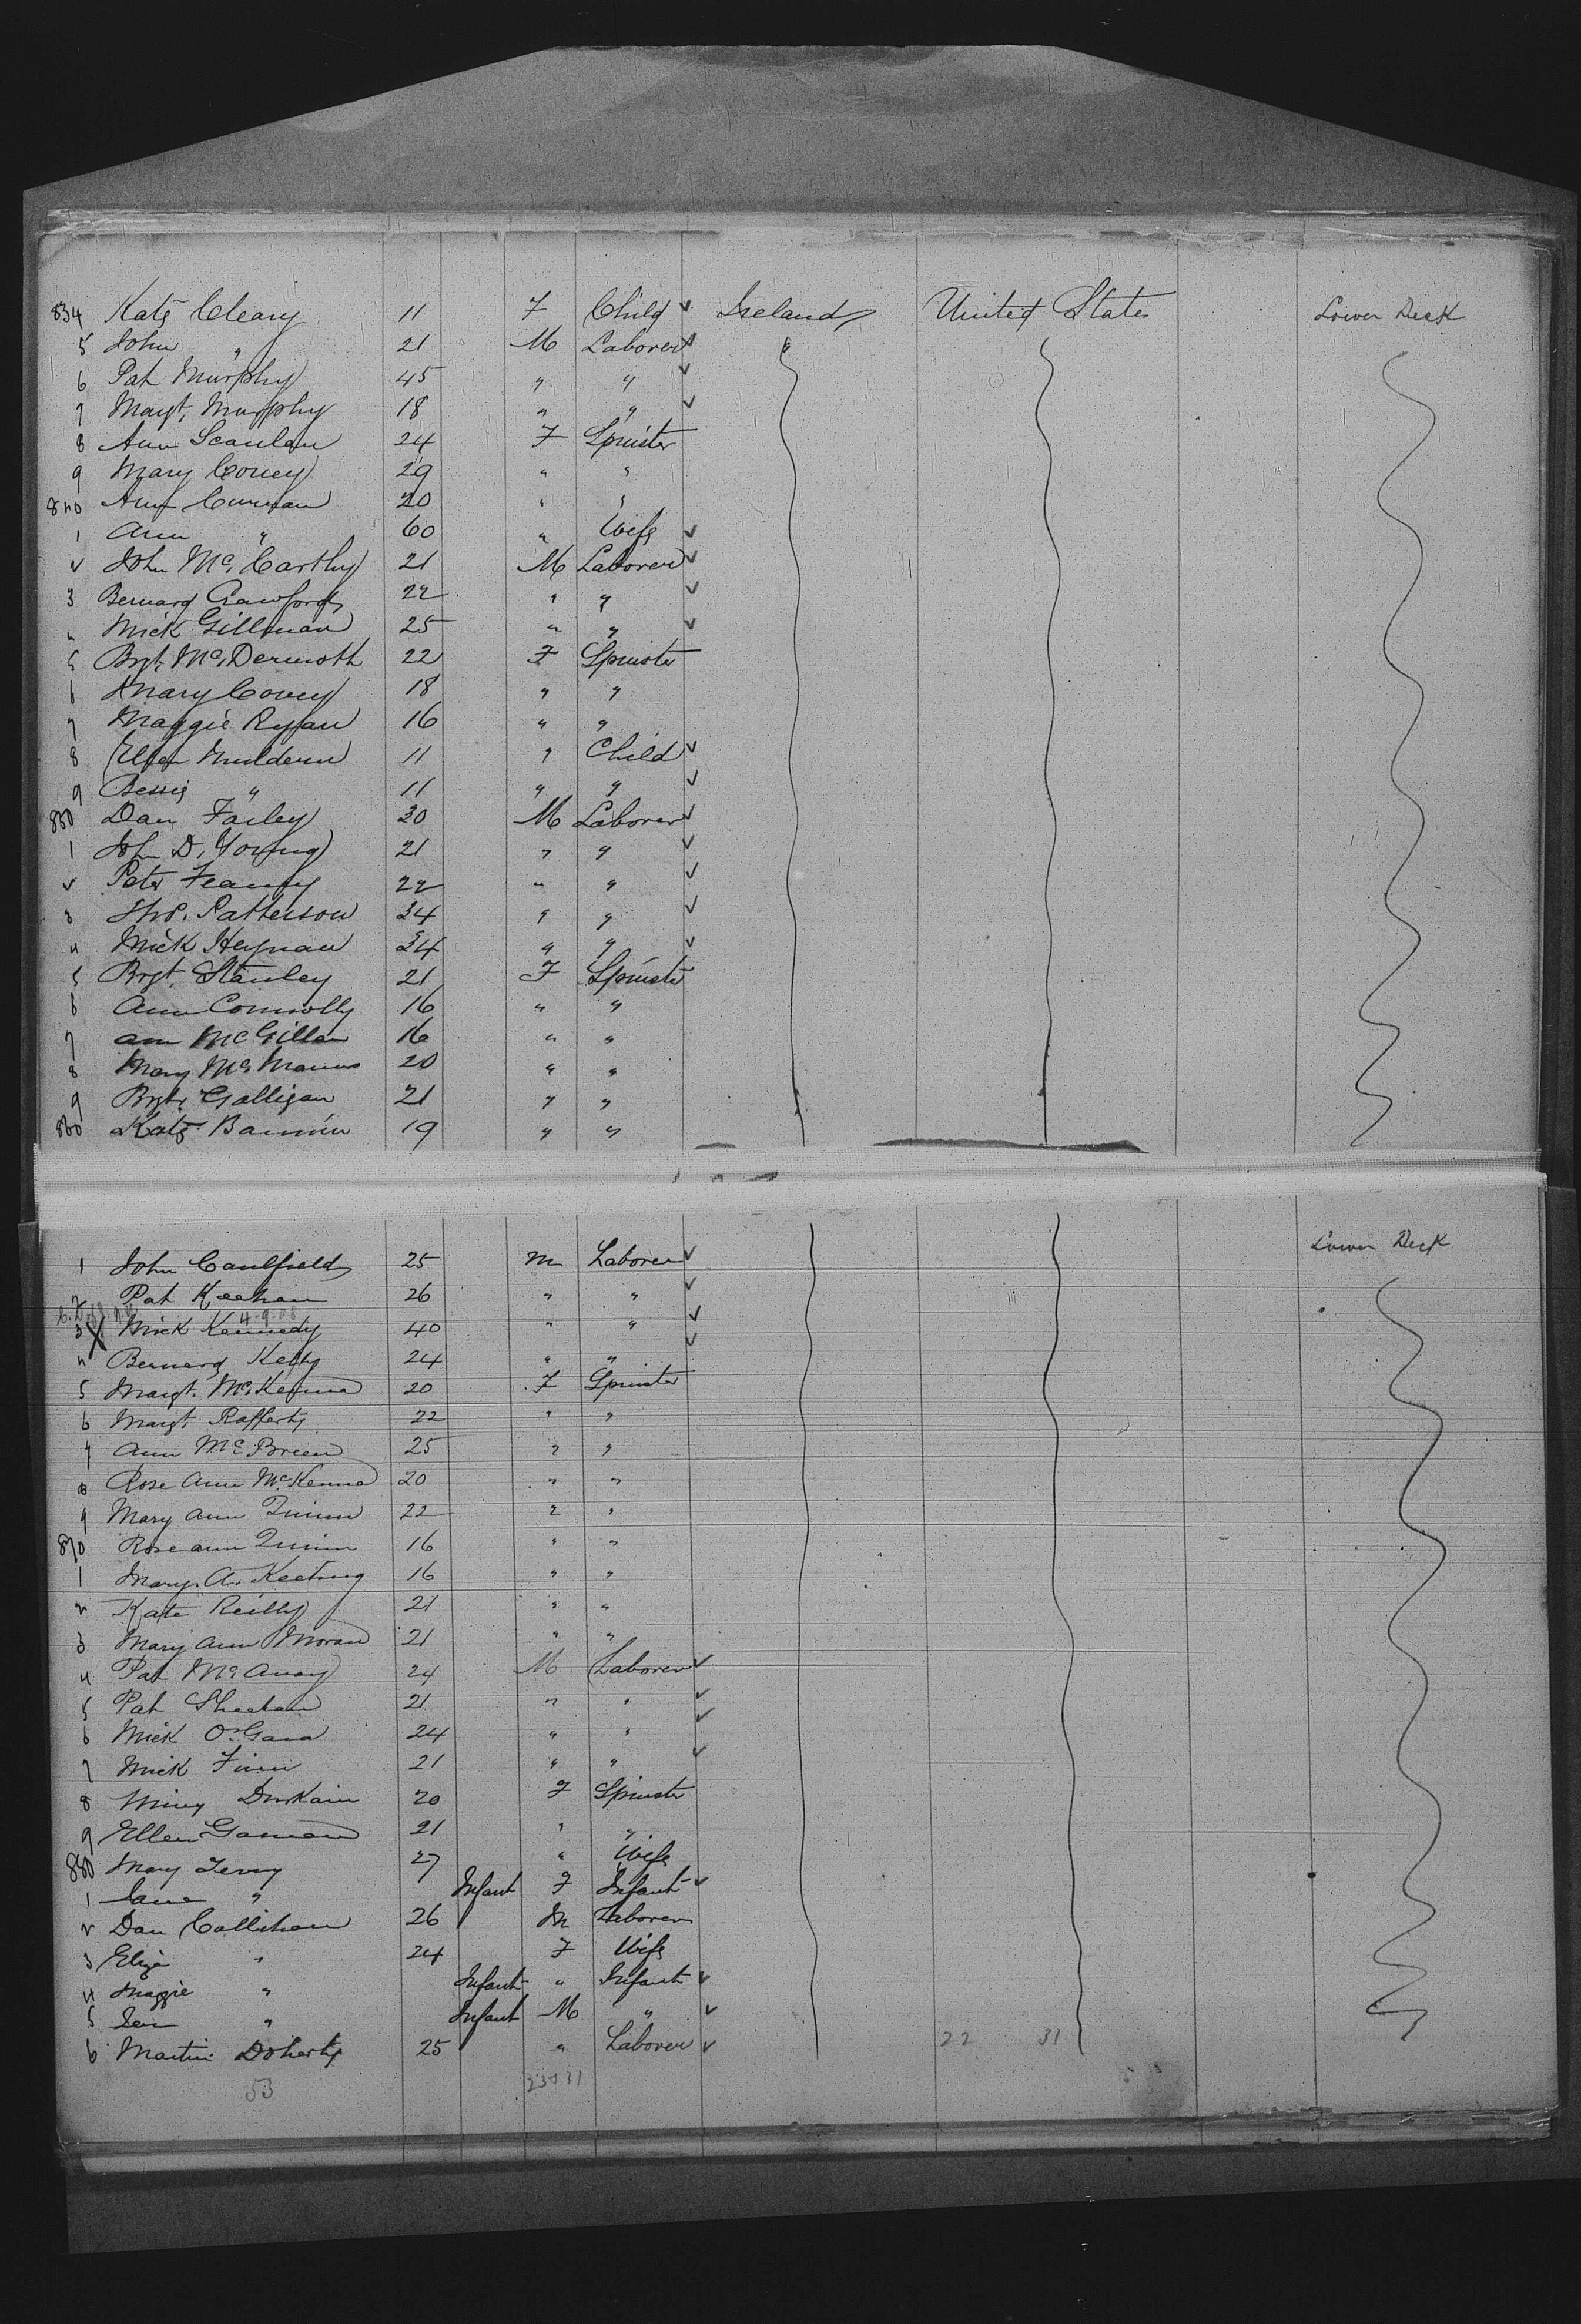 834 Kate Cleary 11 F Child ✓ Ireland United States Lower Deck
5 John " 21 M Laborer ✓
6 Pat Murphy 45 " " ✓
7 Magt. Murphy 18 " " ✓
8 Ann Scanlan 24 F Spinster
9 Mary Covey 29 " "
840 Ann Curran 20 " "
1 Ann " 60 " Wife ✓
2 John Mc Carthy 21 M Laborer ✓
3 Bernard Crawford 22 " " ✓
4 Mick Gillman 25 " " ✓
5 Brgt. Mc Dermoth 22 F Spinster
6 Mary Covey 18 " "
7 Maggie Ryan 16 " "
8 Ellen Muldern 11 " Child ✓
9 Bessie " 11 " " ✓
850 Dan Farley 30 M Laborer ✓
1 John D. Young 21 " " ✓
2 Peter 22 " " ✓
3 Thos. Patterson 34 " " ✓
4 Mick Heynan 34 " " ✓
5 Brgt. Stanley 21 F Spinster
6 Ann Connolly 16 " "
7 Ann McGillan 16 " "
8 Mary Mc Manus 20 " "
9 Brgt. Galligan 21 " "
860 Kate Bannin 19 " "
1 John Caulfield 25 M Laborer ✓ Lower Deck
2 Pat Keehan 26 " " ✓
4-9-08
3 X Mick Kennedy 40 " " ✓
4 Bernard Kelly 24 " " ✓
5 Margt. McKenna 20 F Spinster
6 Margt Rafferty 22 " "
7 Ann McBreen 25 " "
8 Rose Ann McKenna 20 " "
9 Mary Ann Quinn 22 " "
870 Rose ann Quinn 16 " "
1 Mary A. Keating 16 " "
2 Kate Reilly 21 " "
3 Mary Ann Moran 21 " "
4 Pat McAvoy 24 M Laborer ✓
5 Pat Sheehan 21 " " ✓
6 Mick O'Gara 24 " " ✓
7 Mick Finn 21 " " ✓
8 Winey Durkain 20 F Spinster
9 Ellen 21 " "
880 Mary 27 " Wife
1 Jane " Infant F Infant ✓
2 Dan Callihan 26 M Laborer
3 Eliza " 24 F Wife
4 Maggie " Infant " Infant ✓
5 " Infant M " ✓
6 Martin Doherty 25 " Laborer ✓ 22 31
53